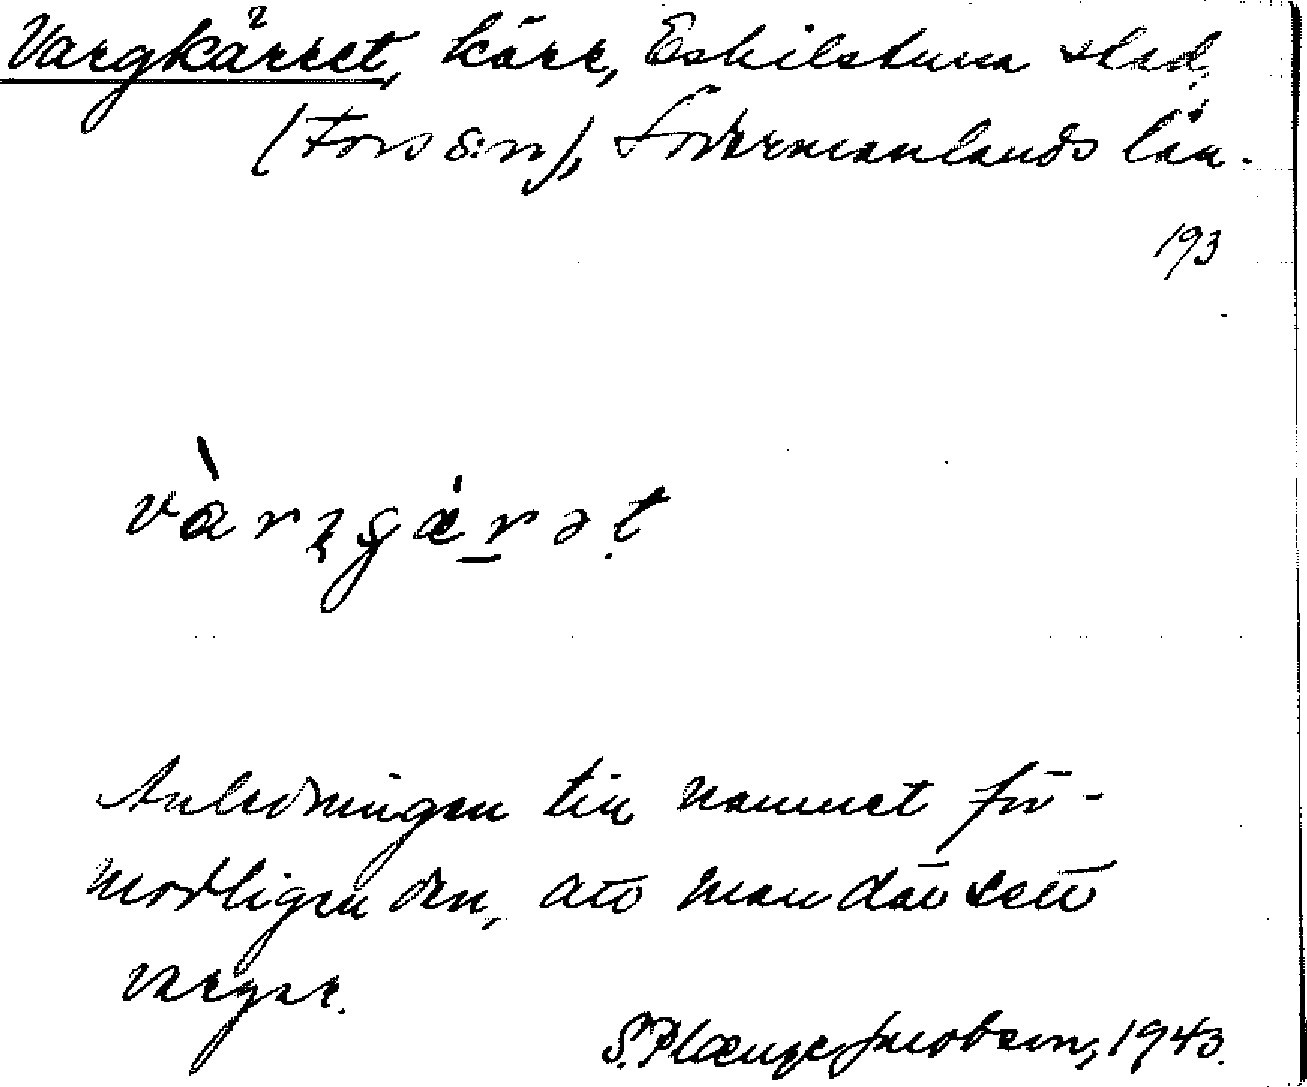 Vargkärret, kärr, Eskilstuna stad,
(Fors sn), Södermanlands län.
193
vàrgæ̀rət
Anledningen till namnet för-
modligen den, att man där sett
vargar.
S. Plænge Jacobson, 1943.